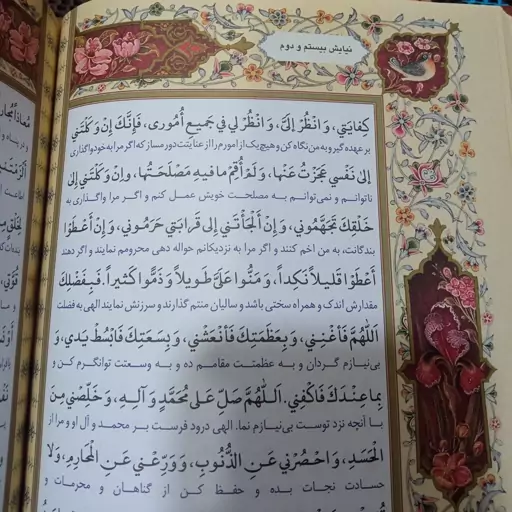 نیایش بیست و دوم
كِفايَتي، وَ انْظُرْ إِلَيَّ، وَ انْظُرْ لي في جَميعِ أُمُوري، فَإِنَّكَ إِنْ وَكَلْتَني
بر عهده گیر و به من نگاه کن و هیچ یک از امورم را از عنایتت دور مساز که اگر مرا به خود واگذاری
إِلى نَفْسي عَجَزْتُ عَنْها، وَ لَمْ أُقِمْ ما فيهِ مَصْلَحَتُها، وَ إِنْ وَكَلْتَني إِلى
ناتوانم و نمی‌توانم به مصلحت خویش عمل کنم و اگر مرا واگذاری به
خَلْقِكَ تَجَهَّمُوني، وَ إِنْ أَلْجَأْتَني إِلى قَرابَتي حَرَمُوني، وَ إِنْ أَعْطَوْا
بندگانت، به من اخم کنند و اگر مرا به نزدیکانم حواله دهی محرومم نمایند و اگر دهند
أَعْطَوْا قَليلاً نَكِداً، وَ مَنُّوا عَلَيَّ طَويلاً وَ ذَمُّوا كَثيراً. فَبِفَضْلِكَ
مقدارش اندک و همراه سختی باشد و سالیان منتم گذارند و سرزنش نمایند الهی به فضلت
اَللّهُمَّ فَأَغْنِني، وَ بِعَظَمَتِكَ فَانْعَشْني، وَ بِسَعَتِكَ فَابْسُطْ يَدي، وَ
بی‌نیازم گردان و به عظمتت مقامم ده و به وسعتت توانگرم کن و
بِما عِنْدَكَ فَاكْفِني. اَللّهُمَّ صَلِّ عَلى مُحَمَّدٍ وَ آلِهِ، وَ خَلِّصْني مِنَ
با آنچه نزد توست بی‌نیازم نما. الهی درود فرست بر محمد و آل او و مرا از
الْحَسَدِ، وَ احْصُرْني عَنِ الذُّنُوبِ، وَ وَرِّعْني عَنِ الْمَحارِمِ، وَ لا
حسادت نجات بده و حفظ کن از گناهان و محرمات و